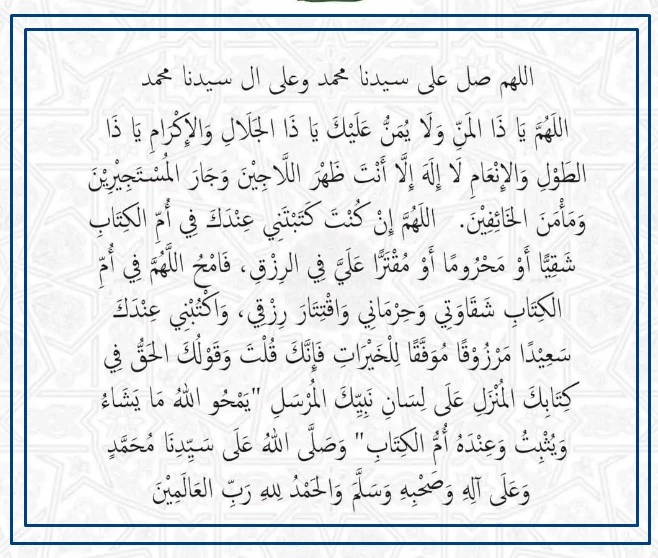 اللهم صل على سيدنا محمد وعلى ال سيدنا محمد
اللَهُمَّ يَا ذَا المَنِّ وَلَا يُمَنُّ عَلَيْكَ يَا ذَا الجَلَالِ وَالإِكْرَامِ يَا ذَا
الطَوْلِ وَالإِنْعَامِ لَا إِلَهَ إِلَّا أَنْتَ ظَهْرَ اللَّاجِيْنَ وَجَارَ المُسْتَجِيْرِيْنَ
وَمَأْمَنَ الخَائِفِيْنَ. اللَهُمَّ إِنْ كُنْتَ كَتَبْتَنِي عِنْدَكَ فِي أُمِّ الكِتَابِ
شَقِيًّا أَوْ مَحْرُومًا أَوْ مُقْتَرًّا عَلَيَّ فِي الرِزْقِ، فَامْحُ اللَّهُمَّ فِي أُمِّ
الكِتَابِ شَقَاوَتِي وَحِرْمَانِي وَاقْتِتَارَ رِزْقِي، وَاكْتُبْنِي عِنْدَكَ
سَعِيْدًا مَرْزُوْقًا مُوَفَّقًا لِلْخَيْرَاتِ فَإِنَّكَ قُلْتَ وَقَوْلُكَ الحَقُّ فِي
كِتَابِكَ المُنْزَلِ عَلَى لِسَانِ نَبِيِّكَ المُرْسَلِ "يَمْحُو اللهُ مَا يَشَاءُ
وَيُثْبِتُ وَعِنْدَهُ أُمُّ الكِتَابِ" وَصَلَّى اللهُ عَلَى سَيِّدِنَا مُحَمَّدٍ
وَعَلَى آلِهِ وَصَحْبِهِ وَسَلَّمَ وَالحَمْدُ لِلهِ رَبِّ العَالَمِيْنَ